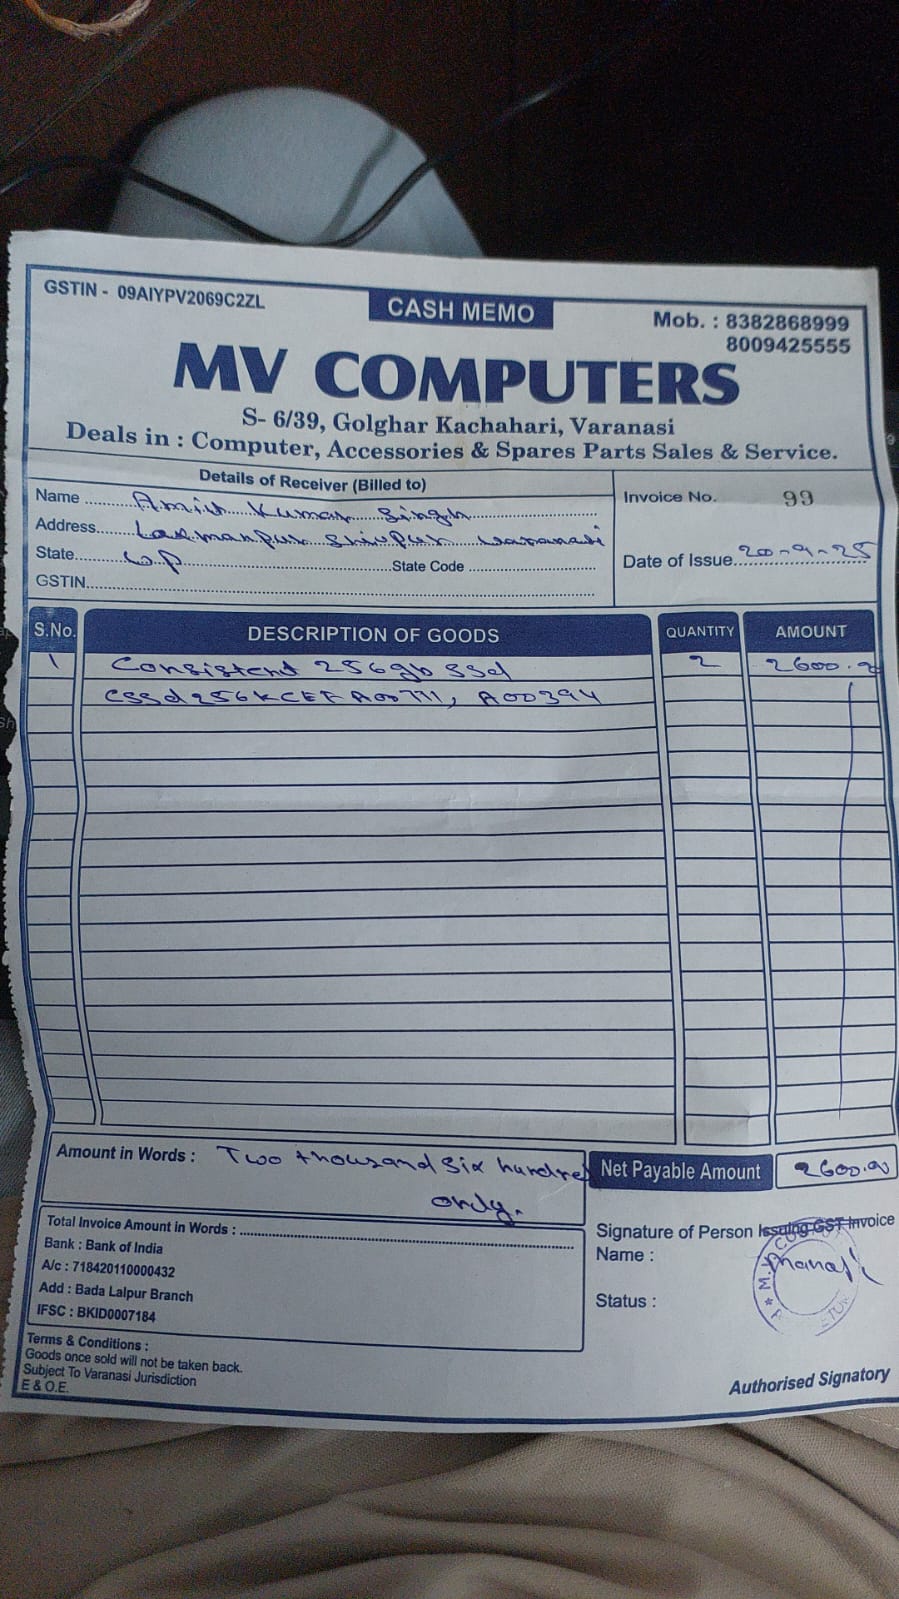 GSTIN - 09AIYPV2069C2ZL
CASH MEMO
Mob. : 8382868999
8009425555
MV COMPUTERS
S- 6/39, Golghar Kachahari, Varanasi
Deals in : Computer, Accessories & Spares Parts Sales & Service.
Details of Receiver (Billed to)
Name Amit Kumar Singh
Address Laxmanpur Shivpur Varanasi
State U.P
State Code
GSTIN
Invoice No. 99
Date of Issue 20-9-25
S.No. DESCRIPTION OF GOODS QUANTITY AMOUNT
1 Consistent 256gb SSd 2 2600.00
A00394
Amount in Words : Two thousand six hundred
only.
Net Payable Amount 2600.00
Total Invoice Amount in Words :
Bank : Bank of India
A/c : 718420110000432
Add : Bada Lalpur Branch
IFSC : BKID0007184
Signature of Person Issuing GST Invoice
Name :
Status :
Terms & Conditions :
Goods once sold will not be taken back.
Subject To Varanasi Jurisdiction
E & O.E.
Authorised Signatory